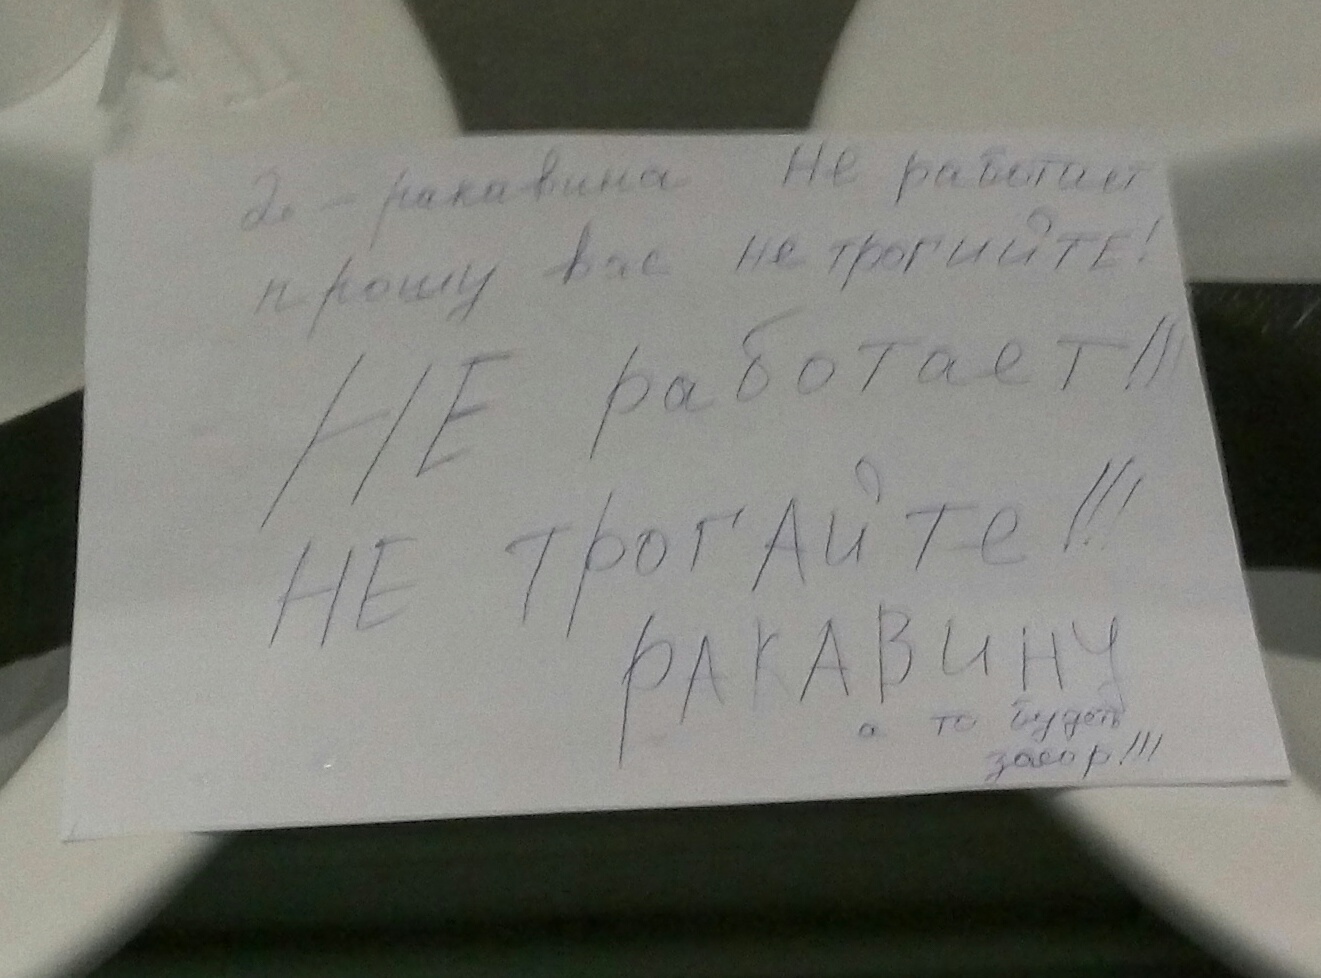 2. - ракавина не работает
прошу вас не трогийТЕ!
НЕ работает!!!
НЕ трогАйте!!!
РАКАВИНУ
а то будет
засор!!!